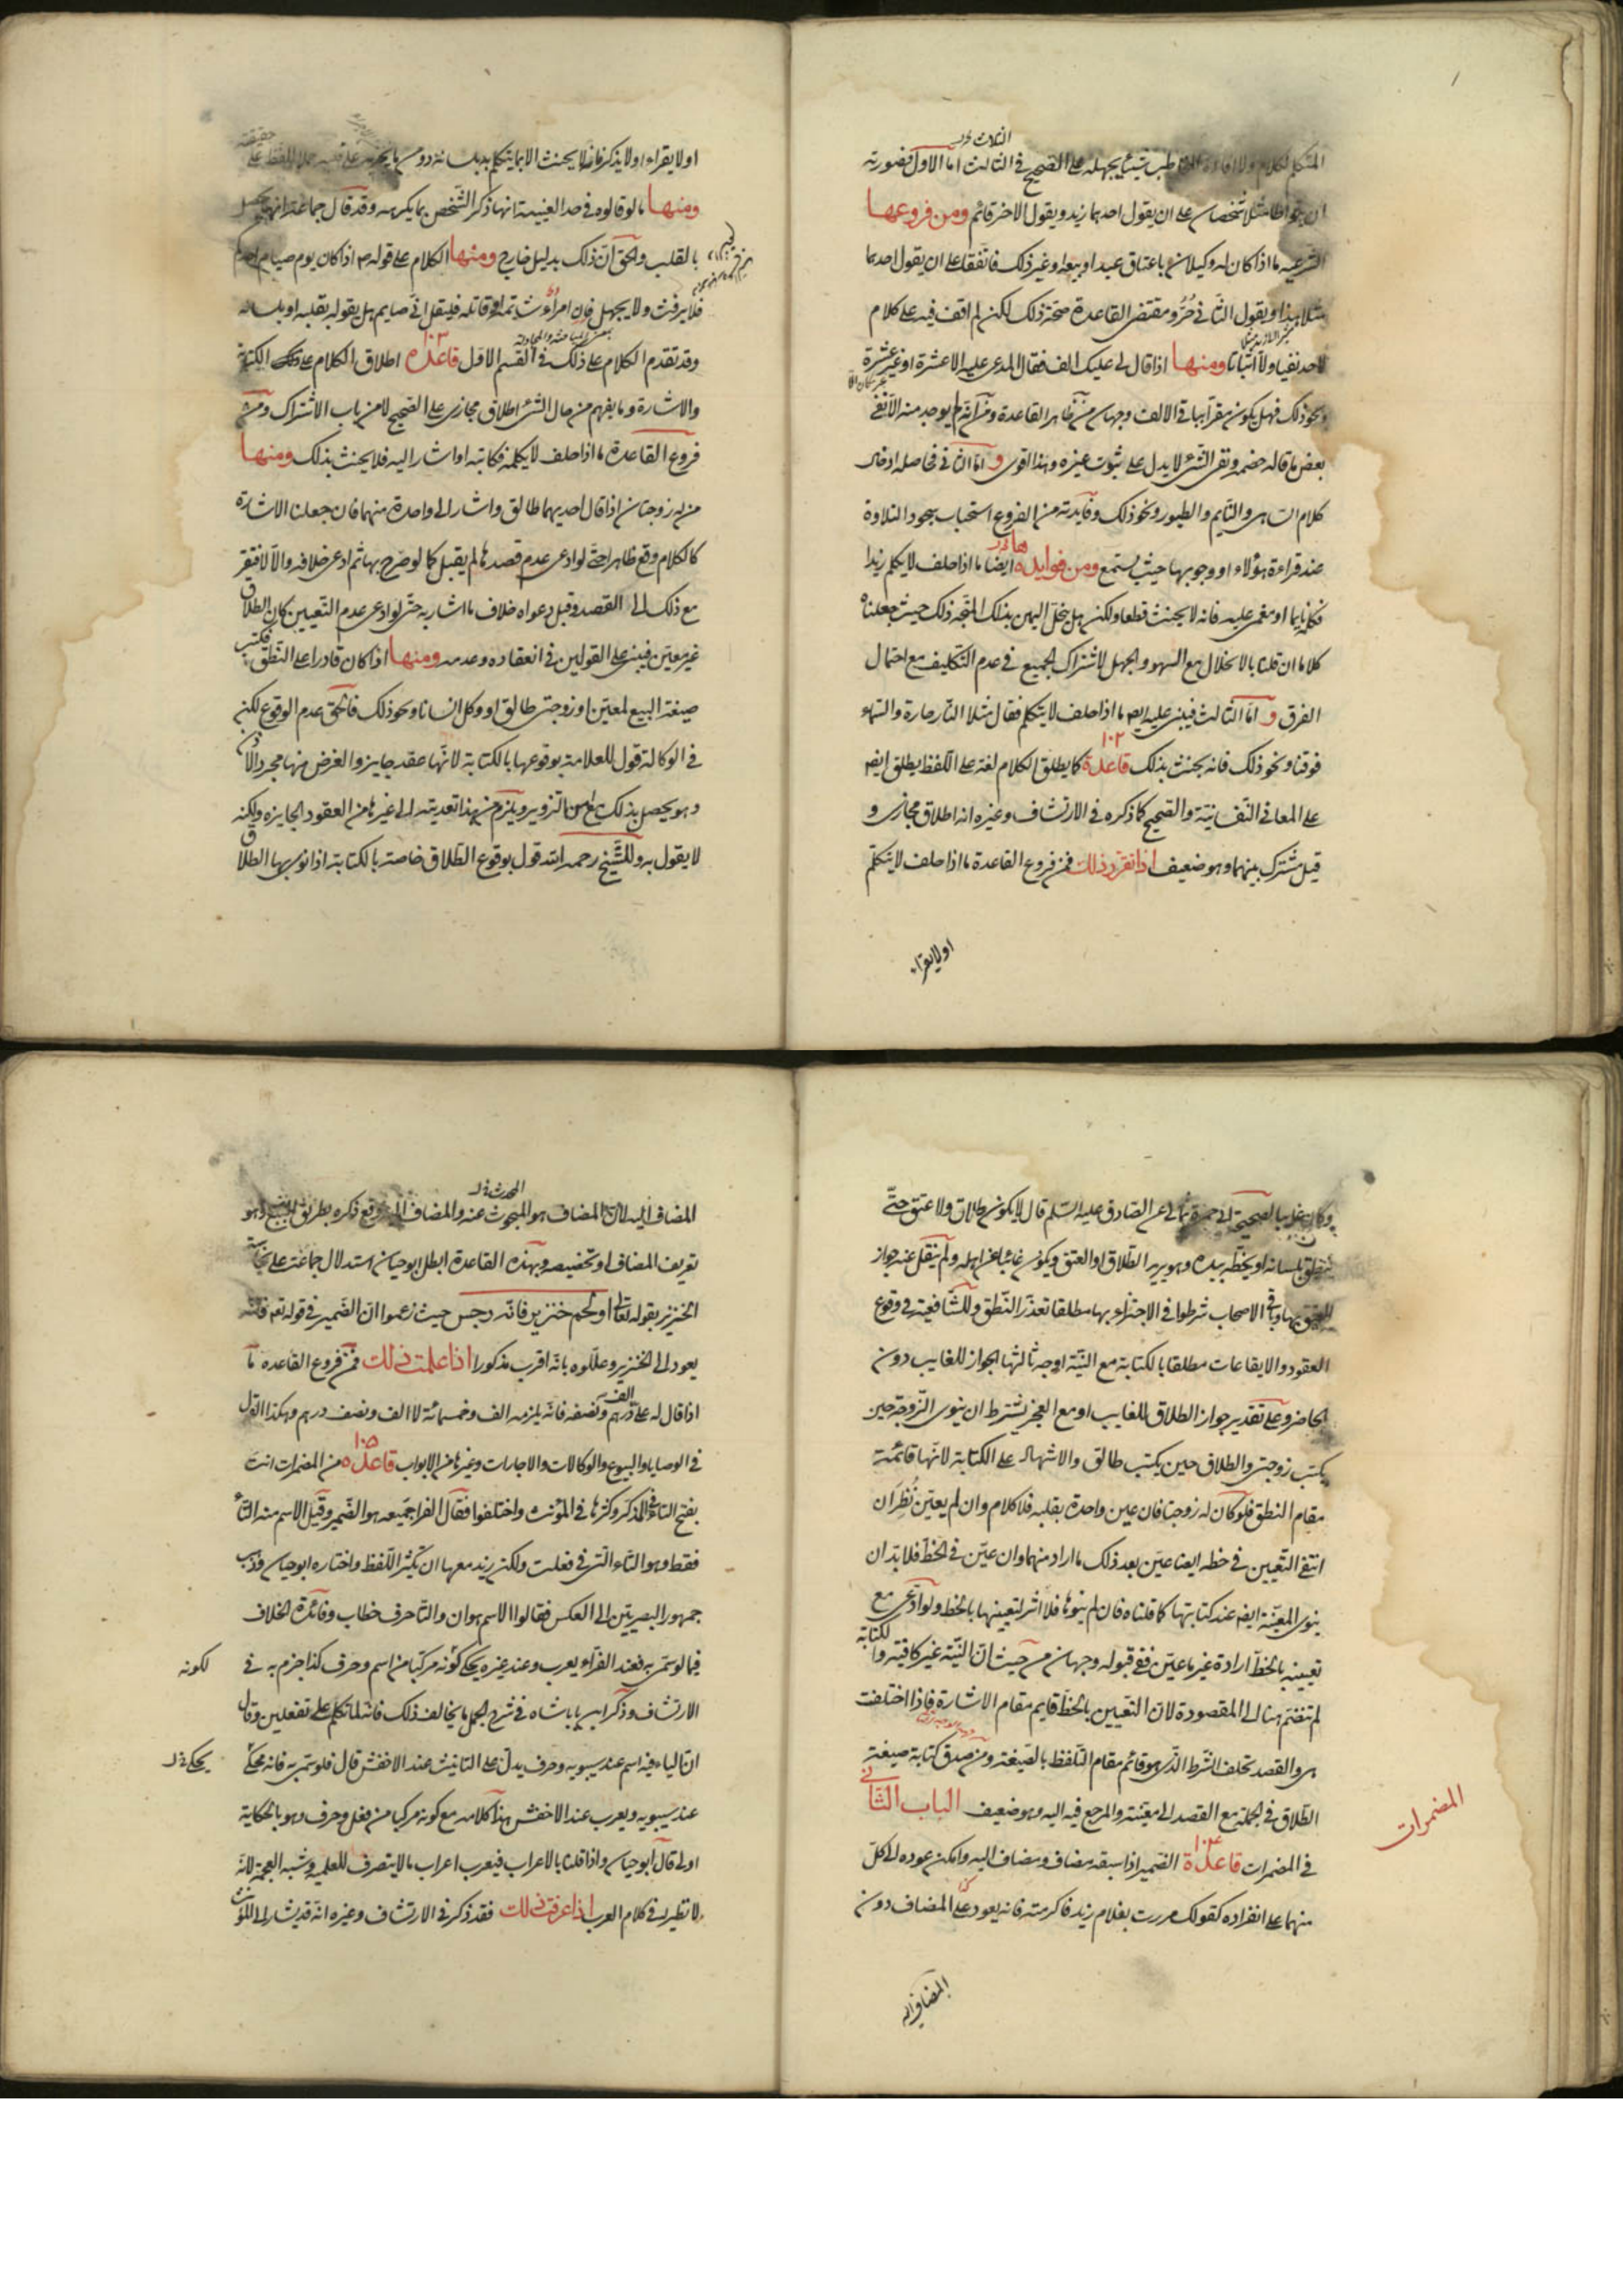 الثلاث
المتكلم لكلام ولا افادة المخاطب شيئا يجهله على الصحيح في الثالث اما الاول فصورته
ان يتواطا مثلا شخصان على ان يقول احدهما زيد ويقول الاخر قائم ومن فروعها
الشرعيه ما اذا كان له وكيلان باعتاق عبد او بيعه او غير ذلك فاتفقا على ان يقول احدهما
مثلا هذا ويقول الثاني حر ومقتضى القاعدة صحة ذلك لكن لم اقف فيه على كلام
لاحد نفيا ولا اثباتا ومنها اذا قال لي عليك الف فقال المدعى عليه الا عشرة او غير عشرة
ونحو ذلك فهل يكون مقرا بباقي الالف وجهان من ظاهر القاعدة ومن انه لم يوجد منه الا نفي
بعض ما قاله خصمه ونفي الشيء لا يدل على ثبوت غيره وهذا اقوى و اما الثاني فحاصله ادخال
كلام الساهي والنايم والطيور ونحو ذلك وفايدته من الفروع استحباب سجود التلاوة
عند قراءة هؤلاء او وجوبها حيث يستمع ومن فوايده ايضا ما اذا حلف لا يكلم زيدا
فكلمه نايما او مغمى عليه فانه لا يحنث قطعا ولكن هل ينحل اليمين بذلك المتجه ذلك حيث جعلناه
كلاما ان قلنا بالانحلال مع السهو والجهل لاشتراك الجميع في عدم التكليف مع احتمال
الفرق و اما الثالث فيبنى عليه ايضا ما اذا حلف لا يتكلم فقال مثلا النار حارة والسماء
فوقنا ونحو ذلك فانه يحنث بذلك قاعدة ١٠٢ كما يطلق الكلام لغة على اللفظ يطلق ايضا
على المعاني النفسانية والصحيح كما ذكره في الارتشاف وغيره انه اطلاق مجازي و
قيل مشترك بينهما وهو ضعيف اذا تقرر ذلك فمن فروع القاعدة ما اذا حلف لا يتكلم
اولا يقراء
اولا يقراء او لا يذكر فانه لا يحنث الا بما يتكلم به بلسانه دون ما يجريه على قلبه حملا للفظ على حقيقته
ومنها ما لو قالوه في حد الغيبة انها ذكر الشخص بما يكرهه وقد قال جماعة انها تحصل
بالقلب والحق ان ذلك بدليل خارج ومنها الكلام على قوله اذا كان يوم صيام احدكم
فلا يرفث ولا يجهل فان امرؤ شاتمه او قاتله فليقل اني صايم هل يقوله بقلبه او بلسانه
وقد تقدم الكلام على ذلك في القسم الاول قاعدة ١٠٣ اطلاق الكلام على الكتابة
والاشارة وما يفهم من حال الشيء اطلاق مجازي على الصحيح لا من باب الاشتراك ومن
فروع القاعدة ما اذا حلف لا يكلمه فكاتبه او اشار اليه فلا يحنث بذلك ومنها
من له زوجتان اذا قال احديهما طالق واشار الى واحدة منهما فان جعلنا الاشارة
كالكلام وقع ظاهرا حتى لو ادعى عدم قصدها لم يقبل كما لو صرح بها ثم ادعى خلافه والا لافتقر
مع ذلك الى القصد وقبل دعواه خلاف ما اشار به حتى لو ادعى عدم التعيين كان الطلاق
غير معين فيبنى على القولين في انعقاده وعدمه ومنها اذا كان قادرا على النطق فكتب
صيغة البيع لمعين او زوجتي طالق او وكل انسانا ونحو ذلك فالحق عدم الوقوع لكن
في الوكالة قول للعلامة بوقوعها بالكتابة لانها عقد جايز والغرض منها مجرد الاذن
وهو يحصل بذلك مع امن التزوير ويلزم من هذا تعديته الى غيرها من العقود الجايزه ولكنه
لا يقول به وللشيخ رحمه الله قول بوقوع الطلاق خاصة بالكتابة اذا نوى بها الطلاق
الصحيح الى حمزة عن الصادق عليه السلم قال لا يكون طلاق ولا عتق حتى
ينطق بلسانه او يخطه بيده وهو يريد الطلاق او العتق ويكون غائبا عن اهله ولم ينقل عنه جواز
العتق بها وباقي الاصحاب شرطوا في الاجتزاء بها مطلقا تعذر النطق وللشافعية في وقوع
العقود والايقاعات مطلقا بالكتابة مع النية اوجه ثالثها الجواز للغايب دون
الحاضر وعلى تقدير جواز الطلاق للغايب او مع العجز يشترط ان ينوى الزوجة حين
يكتب زوجتي والطلاق حين يكتب طالق والاشهاد على الكتابة لانها قائمة
مقام النطق فلو كان له زوجتا فان عين واحدة بقلبه فلا كلام وان لم يعين نظر ان
انتفى التعيين في خطه ايضا عين بعد ذلك ما اراد منهما وان عين في الخط فلا بد ان
ينوى المعينة ايضا عند كتابتها كما قلناه فان لم ينوها فلا اثر لتعيينها بالخط ولو ادعى مع
تعيينه بالخط ارادة غير ما عين ففي قبوله وجهان من حيث ان النية غير كافية والكتابة
لم تنضم هنا الى المقصودة لان التعيين بالخط قايم مقام الاشارة فاذا اختلفت
هي والقصد تخلف الشرط الذي هو قائم مقام التلفظ بالصيغة ومن صدق كتابة صيغة
الطلاق في الجملة مع القصد الى معينة والمرجع فيه اليه وهو ضعيف الباب الثاني
المضمرات
في المضمرات قاعدة ١٠٤ الضمير اذا سبقه مضاف ومضاف اليه وامكن عوده الى كل
منهما على انفراده كقولك مررت بغلام زيد فاكرمته فانه يعود على المضاف دون
المضاف اليه
المضاف اليه لان المضاف هو المبحوث عنه والمضاف اليه وقع ذكره بطريق التبع وهو
تعريف المضاف او تخصيصه وبهذه القاعدة ابطل ابو حيان استدلال جماعة على نجاسة
الخنزير بقوله تعالى او لحم خنزير فانه رجس حيث زعموا ان الضمير في قوله تعالى فانه
يعود الى الخنزير وعللوه بانه اقرب مذكور اذا علمت ذلك فمن فروع القاعده ما
اذا قال له علي الف درهم ونصفه فانه يلزمه الف وخمسمائة لا الف ونصف درهم وهكذا القول
في الوصايا والبيوع والوكالات والاجارات وغيرها من الابواب قاعدة ١٠٥ من المضمرات انت
بفتح التاء في المذكر وكسرها في المؤنث واختلفوا فقال الفرا جميعه هو الضمير وقيل الاسم منه التاء
فقط وهو التاء التي في فعلت ولكن زيد معها ان تكثيرا للفظ واختاره ابو حيان وذهب
جمهور البصريين الى العكس فقالوا الاسم هو ان والتا حرف خطاب وفائدة الخلاف
فيما لو سمي به فعند الفراء يعرب وعند غيره يحكى كونه مركبا من اسم وحرف كذا جزم به في
لكونه
الارتشاف وذكر ابن بابشاه في شرح الجمل ما يخالف ذلك فانه لما تكلم على تفعلين وقال
ان الياء فيه اسم عند سيبويه وحرف يدل على التانيث عند الاخفش قال فلو سمي به فانه محكى
يحكى
عند سيبويه ويعرب عند الاخفش هذا كلامه مع كونه مركبا من فعل وحرف وهو بالحكاية
اولى قال ابو حيان واذا قلنا بالاعراب فيعرب اعراب ما لا ينصرف للعلمية وشبه العجمة لانه
لا نظير له في كلام العرب اذا عرفت ذلك فقد ذكر في الارتشاف وغيره انه قد يشار الى المؤنث